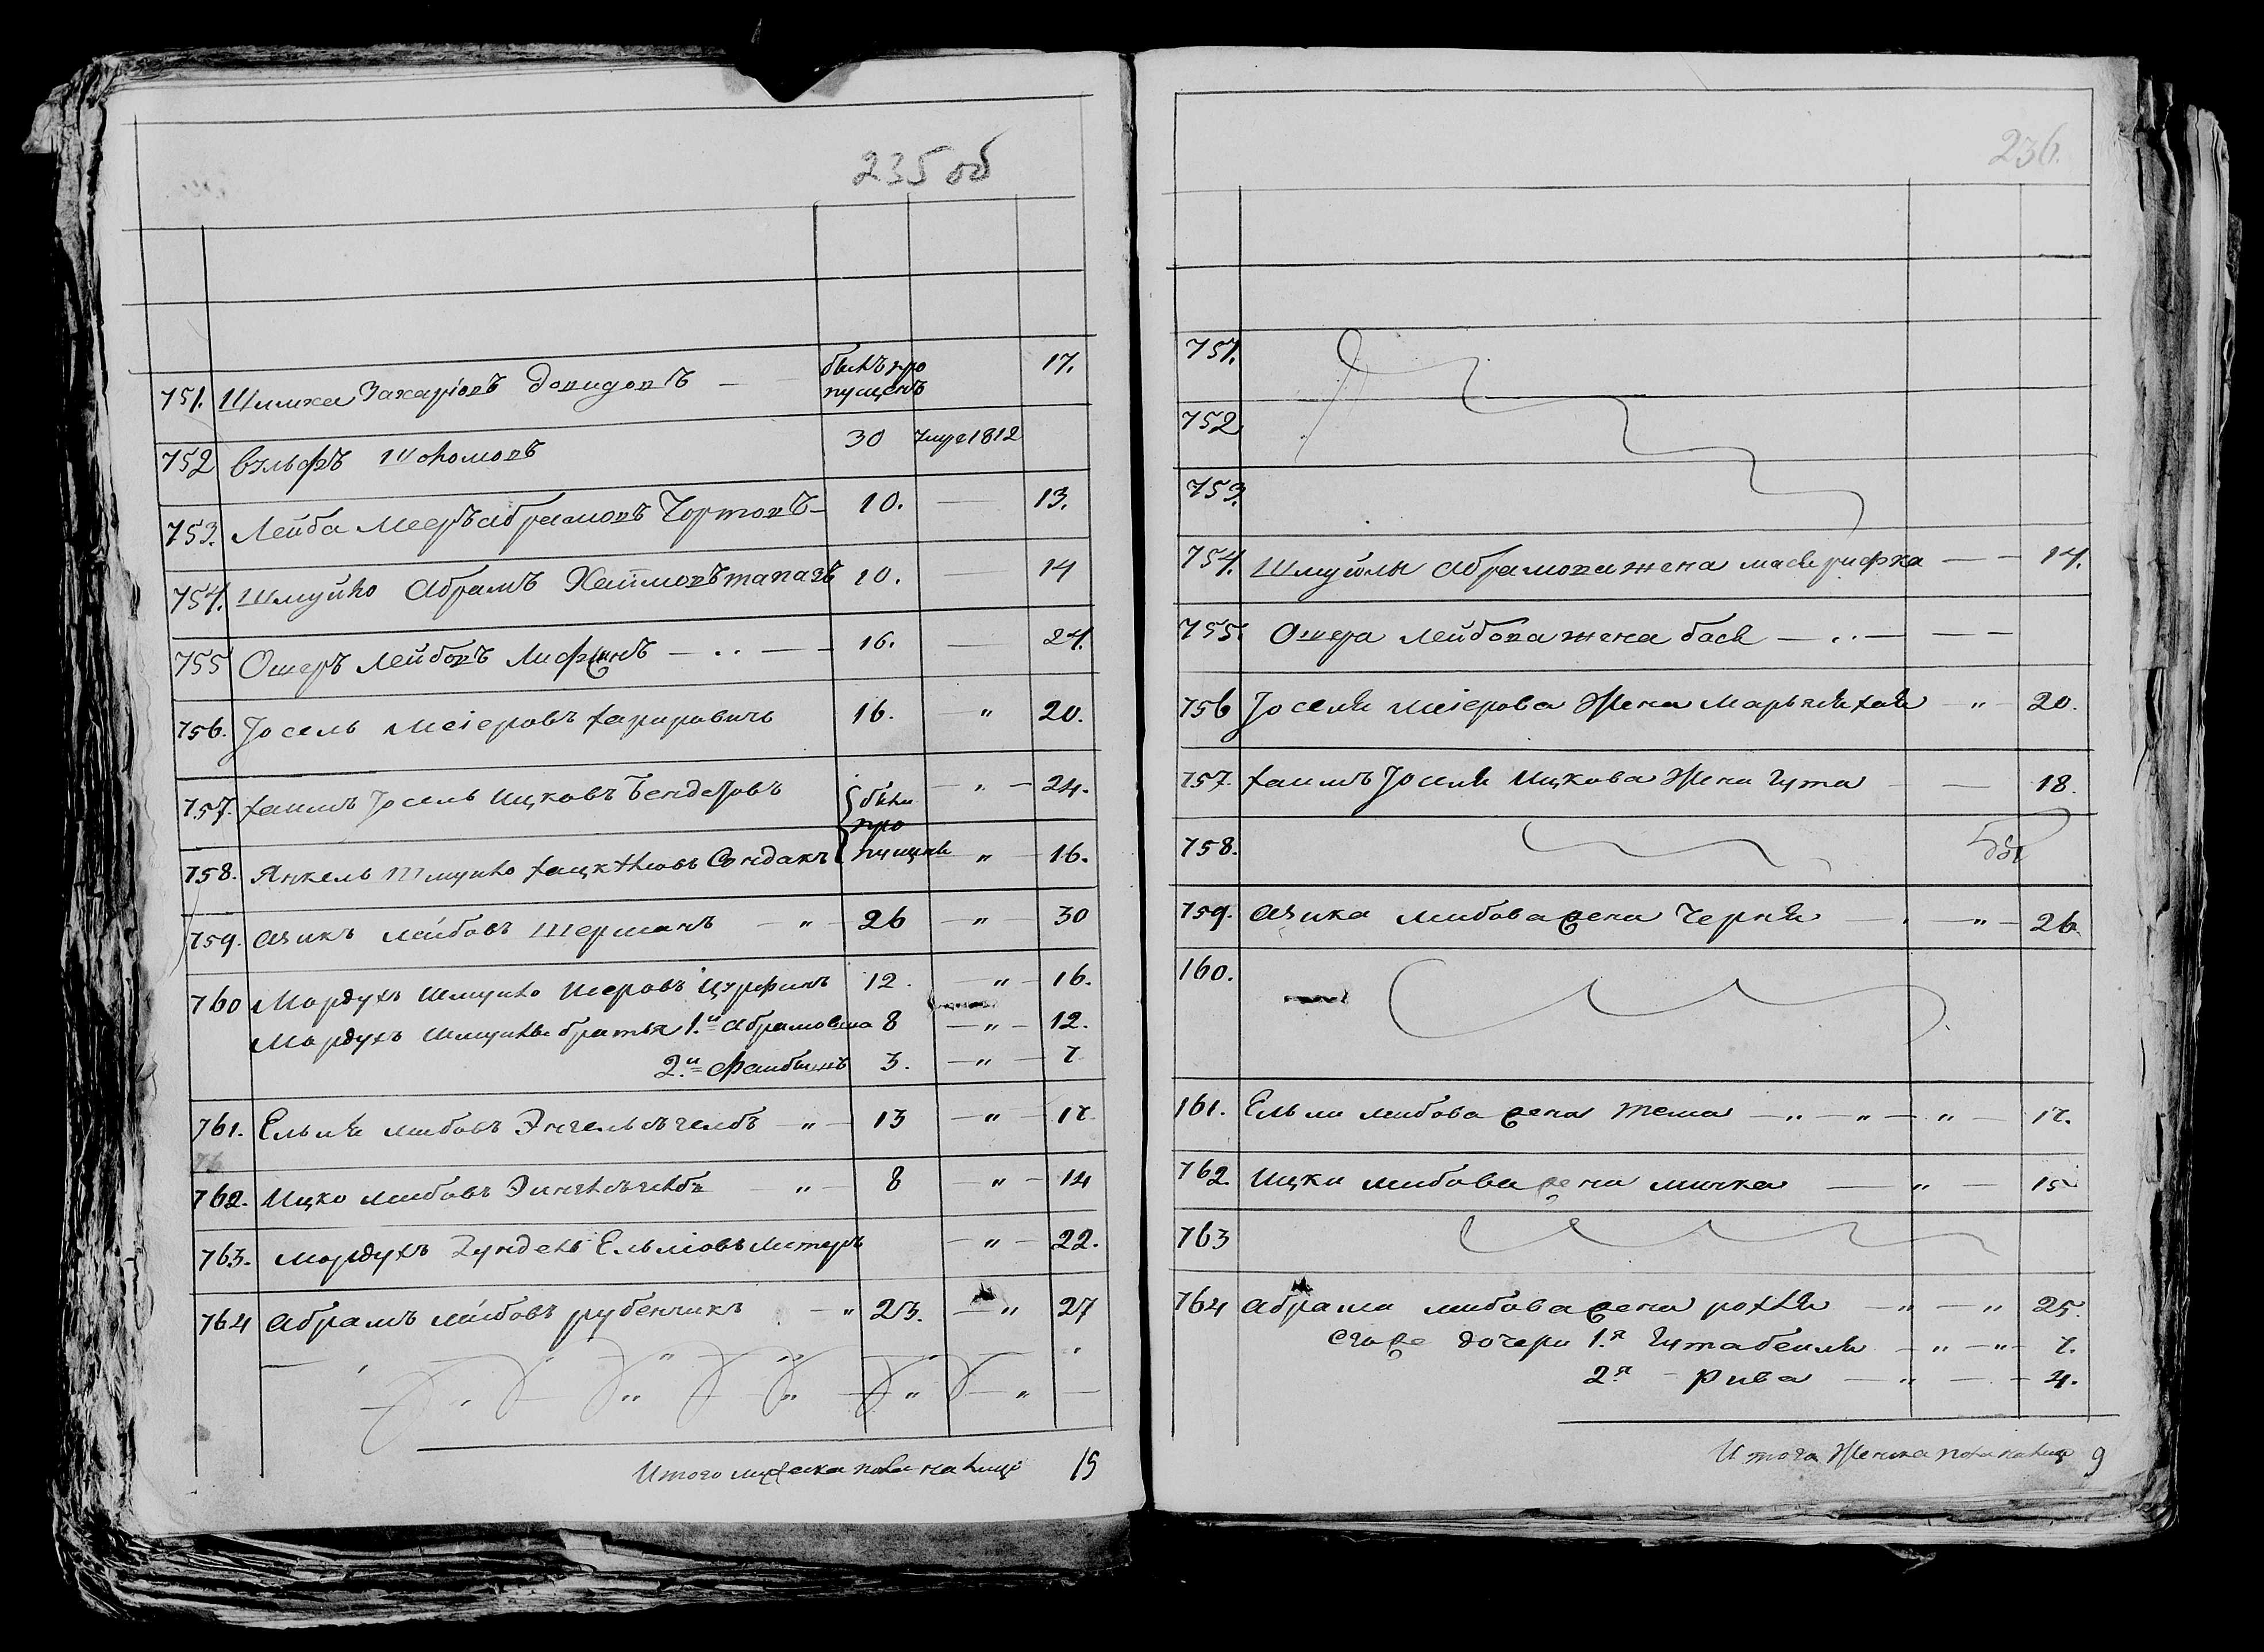 235 об
751. Шлиома Захаріовъ Довидовъ — былъ про 17.
пущенъ
752 Вольфъ Шоломовъ 30 Умре 1812
753. Лейба Мееръ Абрамовъ Чортовъ — 10. — 13.
754. Шмуйло Абрамъ Хаимовъ 10. — 14
755 Ошеръ Лейбовъ Лифшицъ — 16. — 24.
756. Іосель Меіеровъ 16. — " 20.
757. Хаимъ Іосель Ицковъ Бендеровъ были — " — 24.
про
758. Янкель Шмуйло Сондакъ пущены " — 16.
759. Азикъ Лейбовъ Шерманъ — " — 26 — " — 30
760 Мордухъ Шмуйло 12. — " — 16.
Мордухъ Шмуйлы братья 1.й Абрамъ 8 — " — 12.
2.й 3. — " — 7
761. Ельля Лейбовъ — " — 13 — " — 17
762. Ицко Лейбовъ — " — 8 — " — 14
763. Мордухъ Зундель — " — 22.
764 Абрамъ Лейбовъ Рубенчикъ — " 23. — " 27
Итого мужеска пола на лицо 15
236.
751.
752
753.
754. Шмуйлы Абрамова жена Мася Рифка — — 14.
755. Ошера Лейбова жена Бася — .. — — —
756 Іоселя Меіерова жена Марьяля Хая — " — 20.
757. Хаимъ Іоселя Ицкова жена Гута — 18.
758.
759. Азика Лейбова жена Черня " — 26
160.
161. Ельли Лейбова жена Тема — " — " — " — 17.
762. Ицки Лейбова жена — " — 15
763
764 Абрама Лейбова жена Рохля — " — " 25.
его же дочери 1.я Гута Бейля — " — " — 7.
2.я — Рива — " — — 4.
Итого женска пола на лицо 9